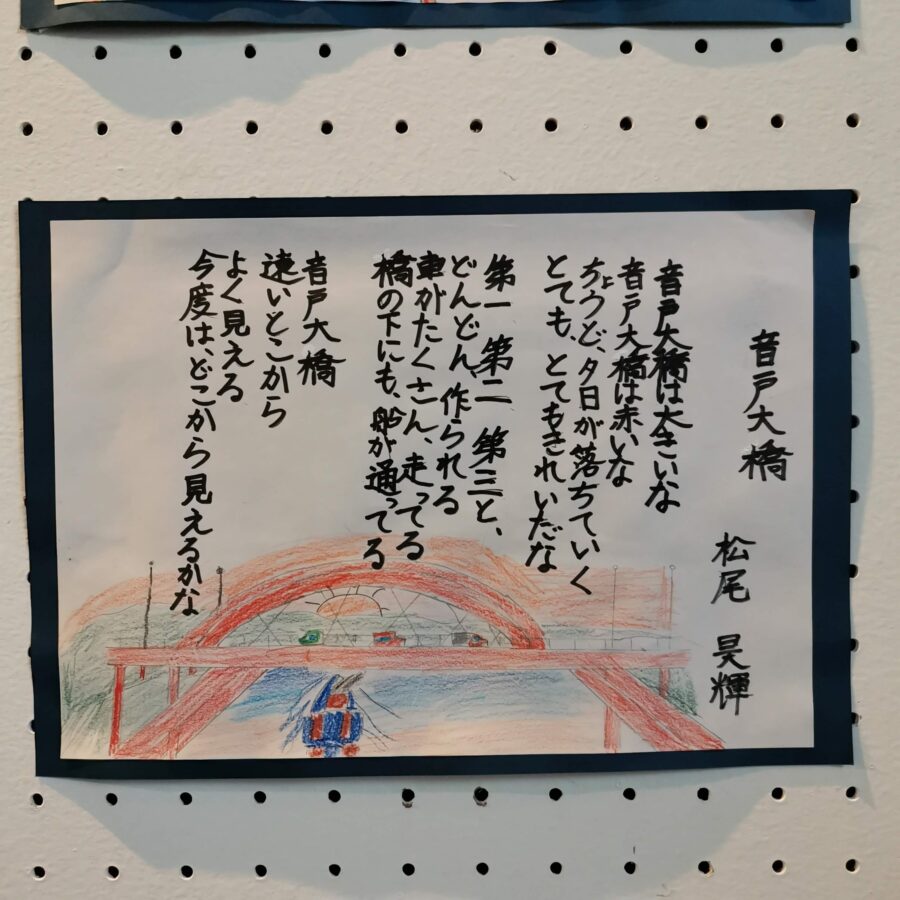 音戸大橋
松尾 昊輝
音戸大橋は大きいな
音戸大橋は赤いな
ちょうど、夕日が落ちていく
とても、とてもきれいだな
第一 第二 第三と、
どんどん、作られる
車がたくさん、走ってる
橋の下にも、船が通ってる
音戸大橋
遠いとこから
よく見える
今度は、どこから見えるかな